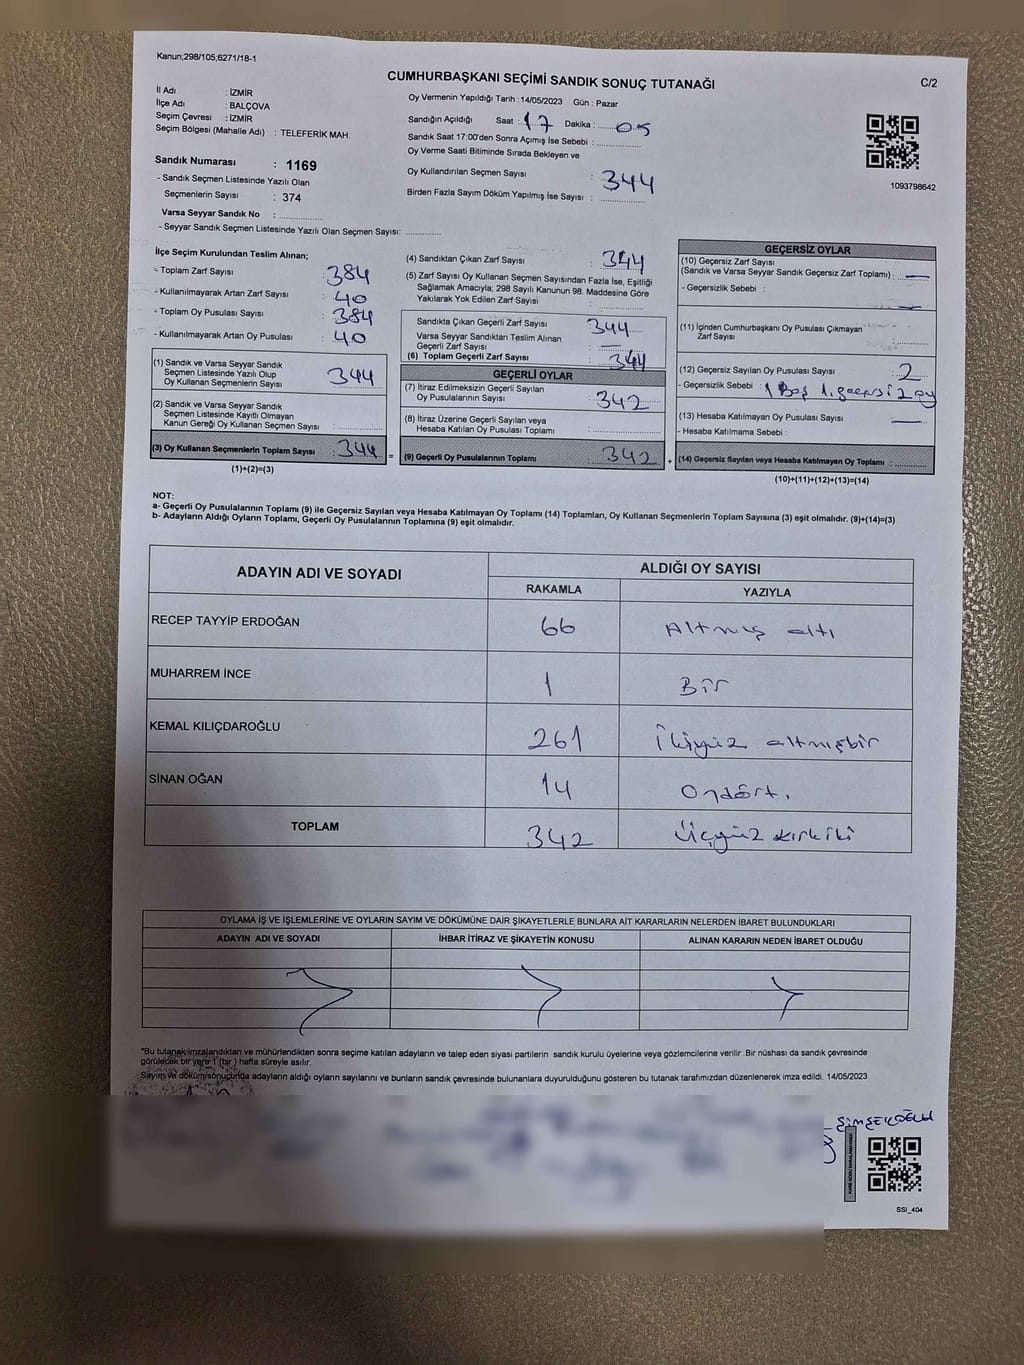 Kanun;298/105;6271/18-1
CUMHURBAŞKANI SEÇİMİ SANDIK SONUÇ TUTANAĞI
C/2
İl Adı : İZMİR
İlçe Adı : BALÇOVA
Seçim Çevresi : İZMİR
Seçim Bölgesi (Mahalle Adı) : TELEFERİK MAH.
Oy Vermenin Yapıldığı Tarih :14/05/2023 Gün : Pazar
Sandığın Açıldığı Saat : 17 Dakika : 05
Sandık Saat 17:00'den Sonra Açımış İse Sebebi :
Oy Verme Saati Bitiminde Sırada Bekleyen ve
Oy Kullandırılan Seçmen Sayısı : 344
Birden Fazla Sayım Döküm Yapılmış İse Sayısı :
1093798642
Sandık Numarası : 1169
- Sandık Seçmen Listesinde Yazılı Olan
Seçmenlerin Sayısı : 374
Varsa Seyyar Sandık No :
- Seyyar Sandık Seçmen Listesinde Yazılı Olan Seçmen Sayısı:
İlçe Seçim Kurulundan Teslim Alınan;
- Toplam Zarf Sayısı : 384
- Kullanılmayarak Artan Zarf Sayısı : 40
- Toplam Oy Pusulası Sayısı : 384
- Kullanılmayarak Artan Oy Pusulası : 40
(1) Sandık ve Varsa Seyyar Sandık
Seçmen Listesinde Yazılı Olup
Oy Kullanan Seçmenlerin Sayısı : 344
(2) Sandık ve Varsa Seyyar Sandık
Seçmen Listesinde Kayıtlı Olmayan
Kanun Gereği Oy Kullanan Seçmen Sayısı :
(3) Oy Kullanan Seçmenlerin Toplam Sayısı : 344
(1)+(2)=(3)
(4) Sandıktan Çıkan Zarf Sayısı : 344
(5) Zarf Sayısı Oy Kullanan Seçmen Sayısından Fazla İse, Eşitliği
Sağlamak Amacıyla; 298 Sayılı Kanunun 98. Maddesine Göre
Yakılarak Yok Edilen Zarf Sayısı :
Sandıkta Çıkan Geçerli Zarf Sayısı : 344
Varsa Seyyar Sandıktan Teslim Alınan
Geçerli Zarf Sayısı : —
(6) Toplam Geçerli Zarf Sayısı : 344
GEÇERLİ OYLAR
(7) İtiraz Edilmeksizin Geçerli Sayılan
Oy Pusulalarının Sayısı : 342
(8) İtiraz Üzerine Geçerli Sayılan veya
Hesaba Katılan Oy Pusulası Toplamı :
= (9) Geçerli Oy Pusulalarının Toplamı : 342
GEÇERSİZ OYLAR
(10) Geçersiz Zarf Sayısı
(Sandık ve Varsa Seyyar Sandık Geçersiz Zarf Toplamı) : —
- Geçersizlik Sebebi : —
(11) İçinden Cumhurbaşkanı Oy Pusulası Çıkmayan
Zarf Sayısı :
(12) Geçersiz Sayılan Oy Pusulası Sayısı : 2
- Geçersizlik Sebebi : 1 Boş 1.geçersiz oy
(13) Hesaba Katılmayan Oy Pusulası Sayısı : —
- Hesaba Katılmama Sebebi :
+ (14) Geçersiz Sayılan veya Hesaba Katılmayan Oy Toplamı :
(10)+(11)+(12)+(13)=(14)
NOT:
a- Geçerli Oy Pusulalarının Toplamı (9) ile Geçersiz Sayılan veya Hesaba Katılmayan Oy Toplamı (14) Toplamları, Oy Kullanan Seçmenlerin Toplam Sayısına (3) eşit olmalıdır. (9)+(14)=(3)
b- Adayların Aldığı Oyların Toplamı, Geçerli Oy Pusulalarının Toplamına (9) eşit olmalıdır.
ADAYIN ADI VE SOYADI ALDIĞI OY SAYISI
RAKAMLA YAZIYLA
RECEP TAYYİP ERDOĞAN 66 Altmış altı
MUHARREM İNCE 1 Bir
KEMAL KILIÇDAROĞLU 261 İkiyüz altmışbir
SİNAN OĞAN 14 Ondört.
TOPLAM 342 Üçyüz kırkiki
OYLAMA İŞ VE İŞLEMLERİNE VE OYLARIN SAYIM VE DÖKÜMÜNE DAİR ŞİKAYETLERLE BUNLARA AİT KARARLARIN NELERDEN İBARET BULUNDUKLARI
ADAYIN ADI VE SOYADI İHBAR İTİRAZ VE ŞİKAYETİN KONUSU ALINAN KARARIN NEDEN İBARET OLDUĞU
*Bu tutanak imzalandıktan ve mühürlendikten sonra seçime katılan adayların ve talep eden siyasi partilerin sandık kurulu üyelerine veya gözlemcilerine verilir .Bir nüshası da sandık çevresinde
görülecek bir yere 1 (bir ) hafta süreyle asılır.
Sayım ve dökümü sonucunda adayların aldığı oyların sayılarını ve bunların sandık çevresinde bulunanlara duyurulduğunu gösteren bu tutanak tarafımızdan düzenlenerek imza edildi. 14/05/2023
ŞİMŞEKOĞLU
SSI_404